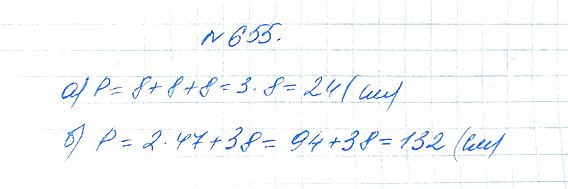 № 655.
а) P = 8 + 8 + 8 = 3 · 8 = 24 (см)
б) P = 2 · 47 + 38 = 94 + 38 = 132 (см)